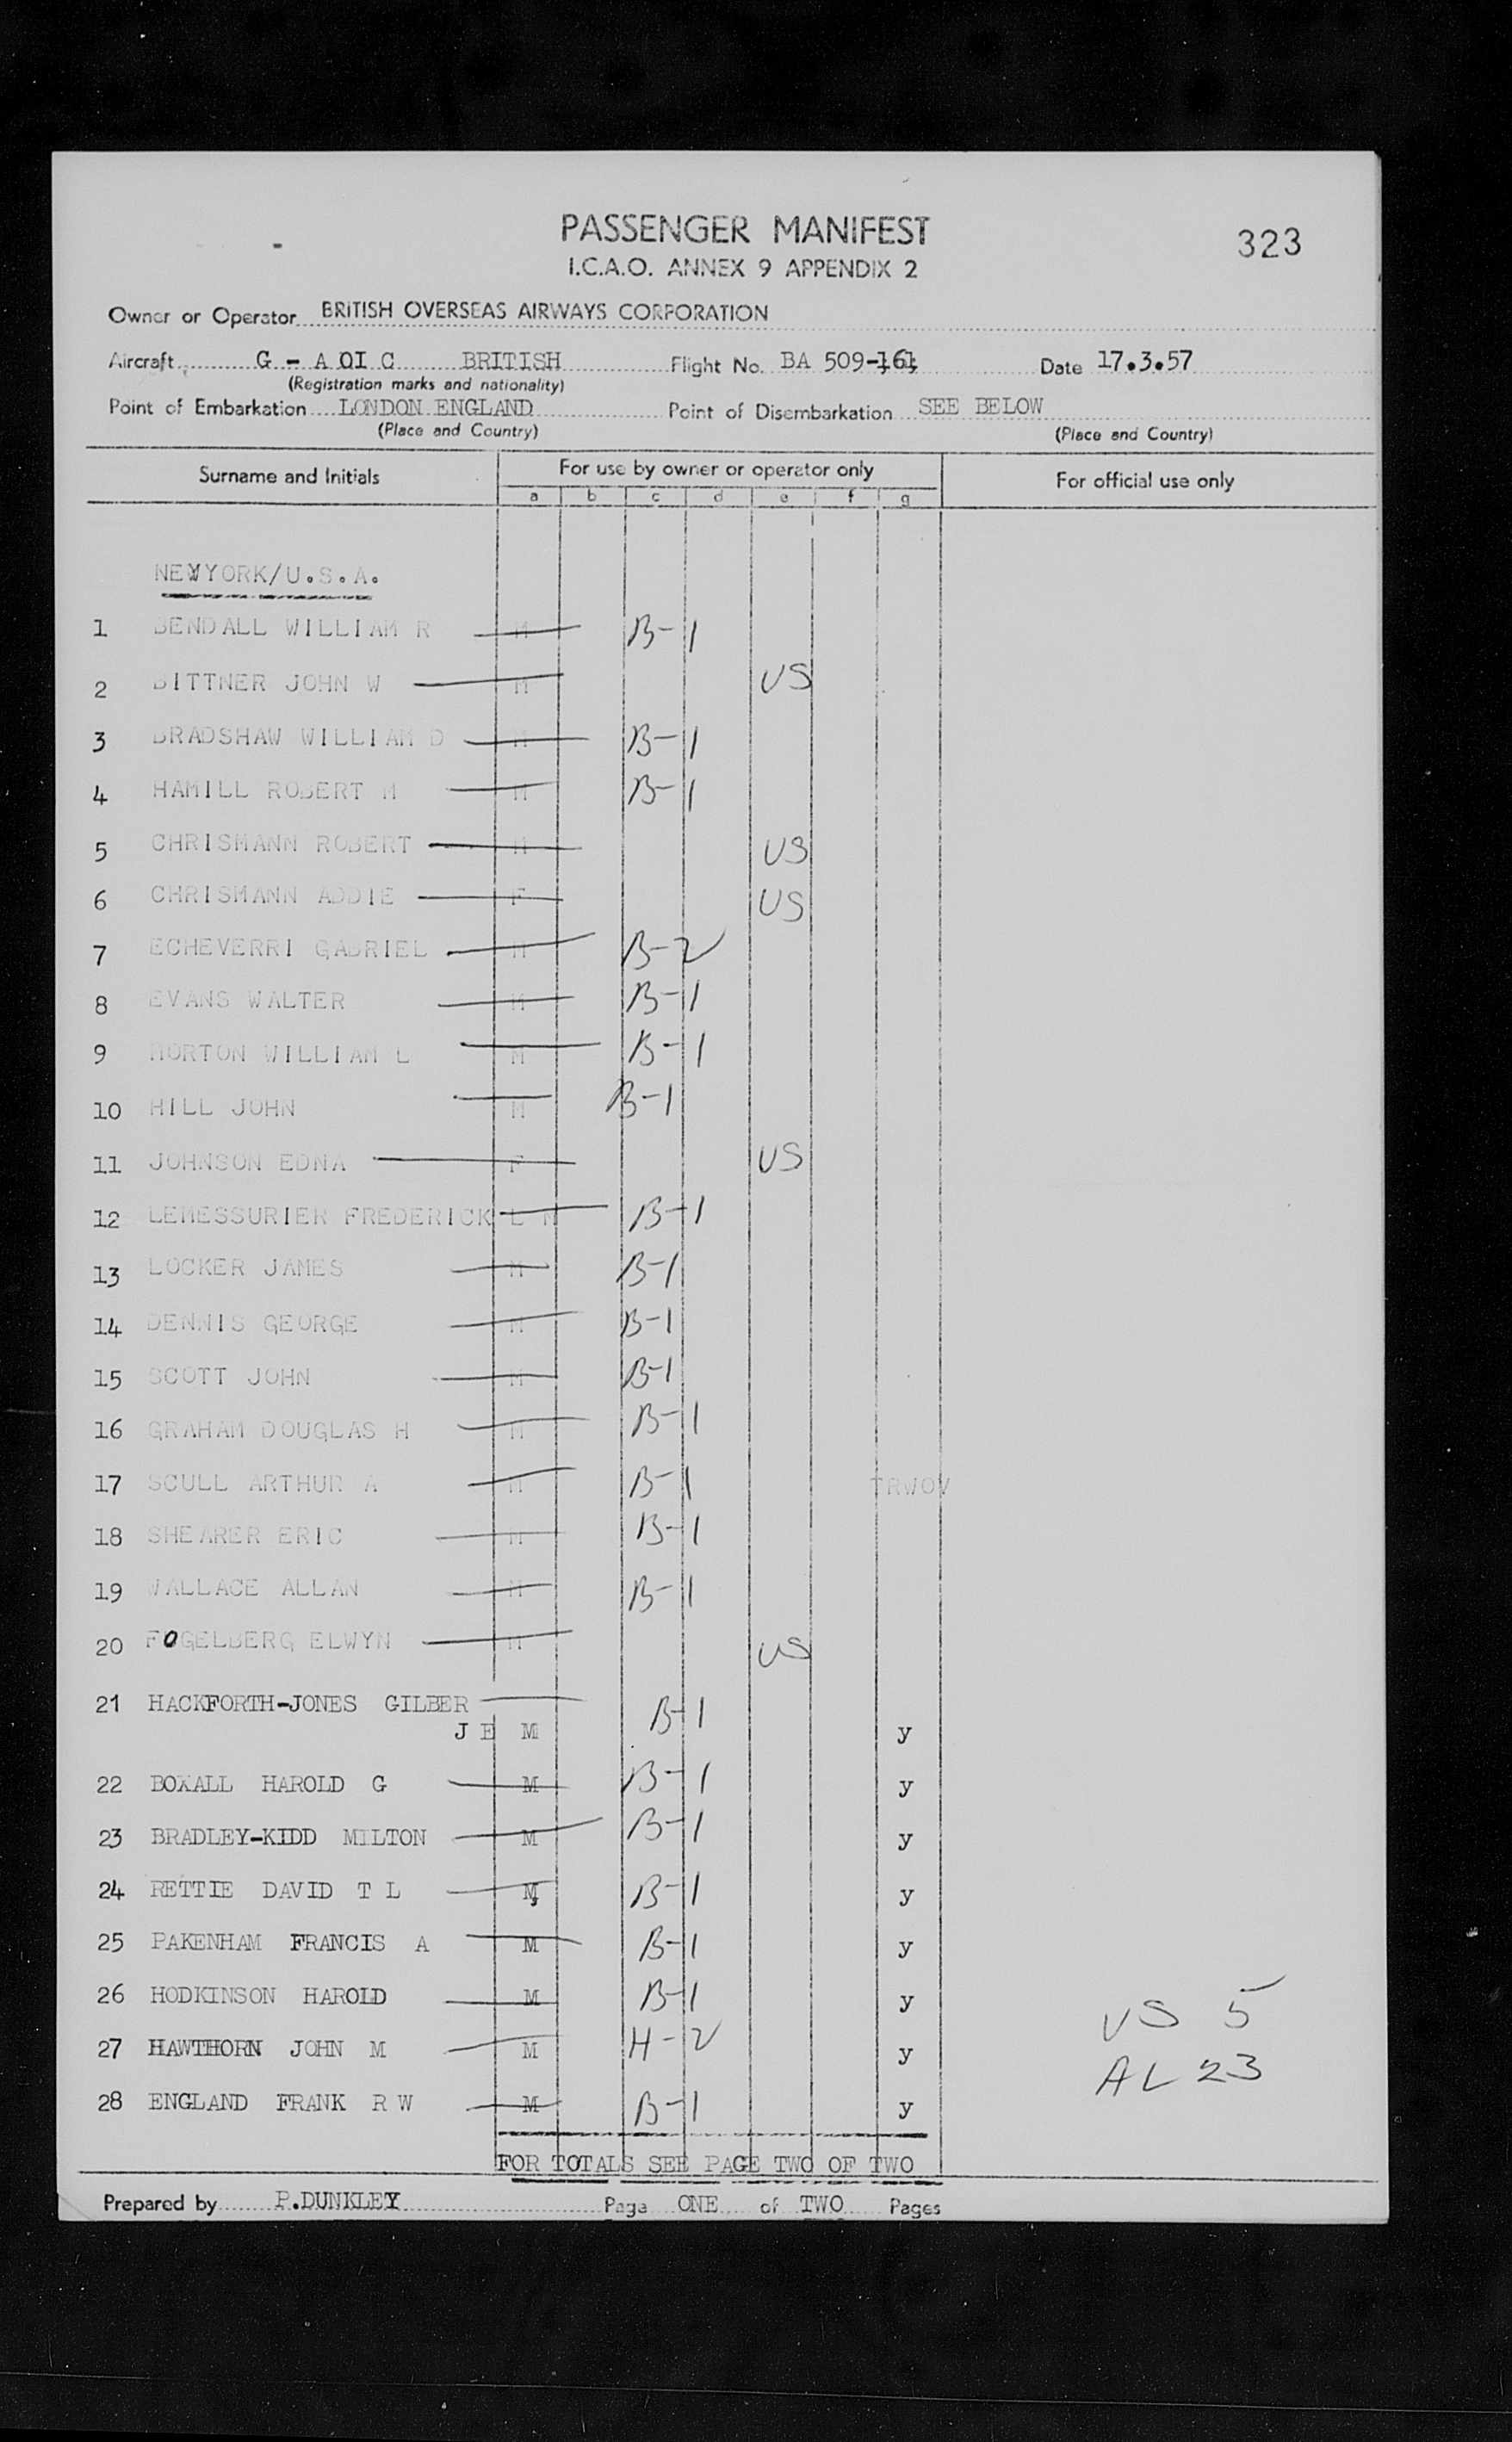 PASSENGER MANIFEST
323
I.C.A.O. ANNEX 9 APPENDIX 2
Owner or Operator BRITISH OVERSEAS AIRWAYS CORPORATION
Aircraft G - A OI C BRITISH Flight No. BA 509-161 Date 17.3.57
(Registration marks and nationality)
Point of Embarkation LONDON ENGLAND Point of Disembarkation SEE BELOW
(Place and Country) (Place and Country)
Surname and Initials For use by owner or operator only For official use only
a b c d e f g
NEWYORK/U.S.A.
1 BENDALL WILLIAM R M B-1
2 BITTNER JOHN W M US
3 BRADSHAW WILLIAM D M B-1
4 HAMILL ROBERT M M B-1
5 CHRISMANN ROBERT M US
6 CHRISMANN ADDIE F US
7 ECHEVERRI GABRIEL M B-2
8 EVANS WALTER M B-1
9 HORTON WILLIAM L M B-1
10 HILL JOHN M B-1
11 JOHNSON EDNA F US
12 LEMESSURIER FREDERICK L M B-1
13 LOCKER JAMES M B-1
14 DENNIS GEORGE M B-1
15 SCOTT JOHN M B-1
16 GRAHAM DOUGLAS H M B-1
17 SCULL ARTHUR A M B-1 TRWOV
18 SHEARER ERIC M B-1
19 WALLACE ALLAN M B-1
20 FOGELBERG ELWYN M US
21 HACKFORTH-JONES GILBER B-1
J E M y
22 BOXALL HAROLD G M B-1 y
23 BRADLEY-KIDD MILTON M B-1 y
24 RETTIE DAVID T L M B-1 y
25 PAKENHAM FRANCIS A M B-1 y
26 HODKINSON HAROLD M B-1 y
US 5
27 HAWTHORN JOHN M M H-2 y
AL 23
28 ENGLAND FRANK R W M B-1 y
FOR TOTALS SEE PAGE TWO OF TWO
Prepared by P.DUNKLEY Page ONE of TWO Pages